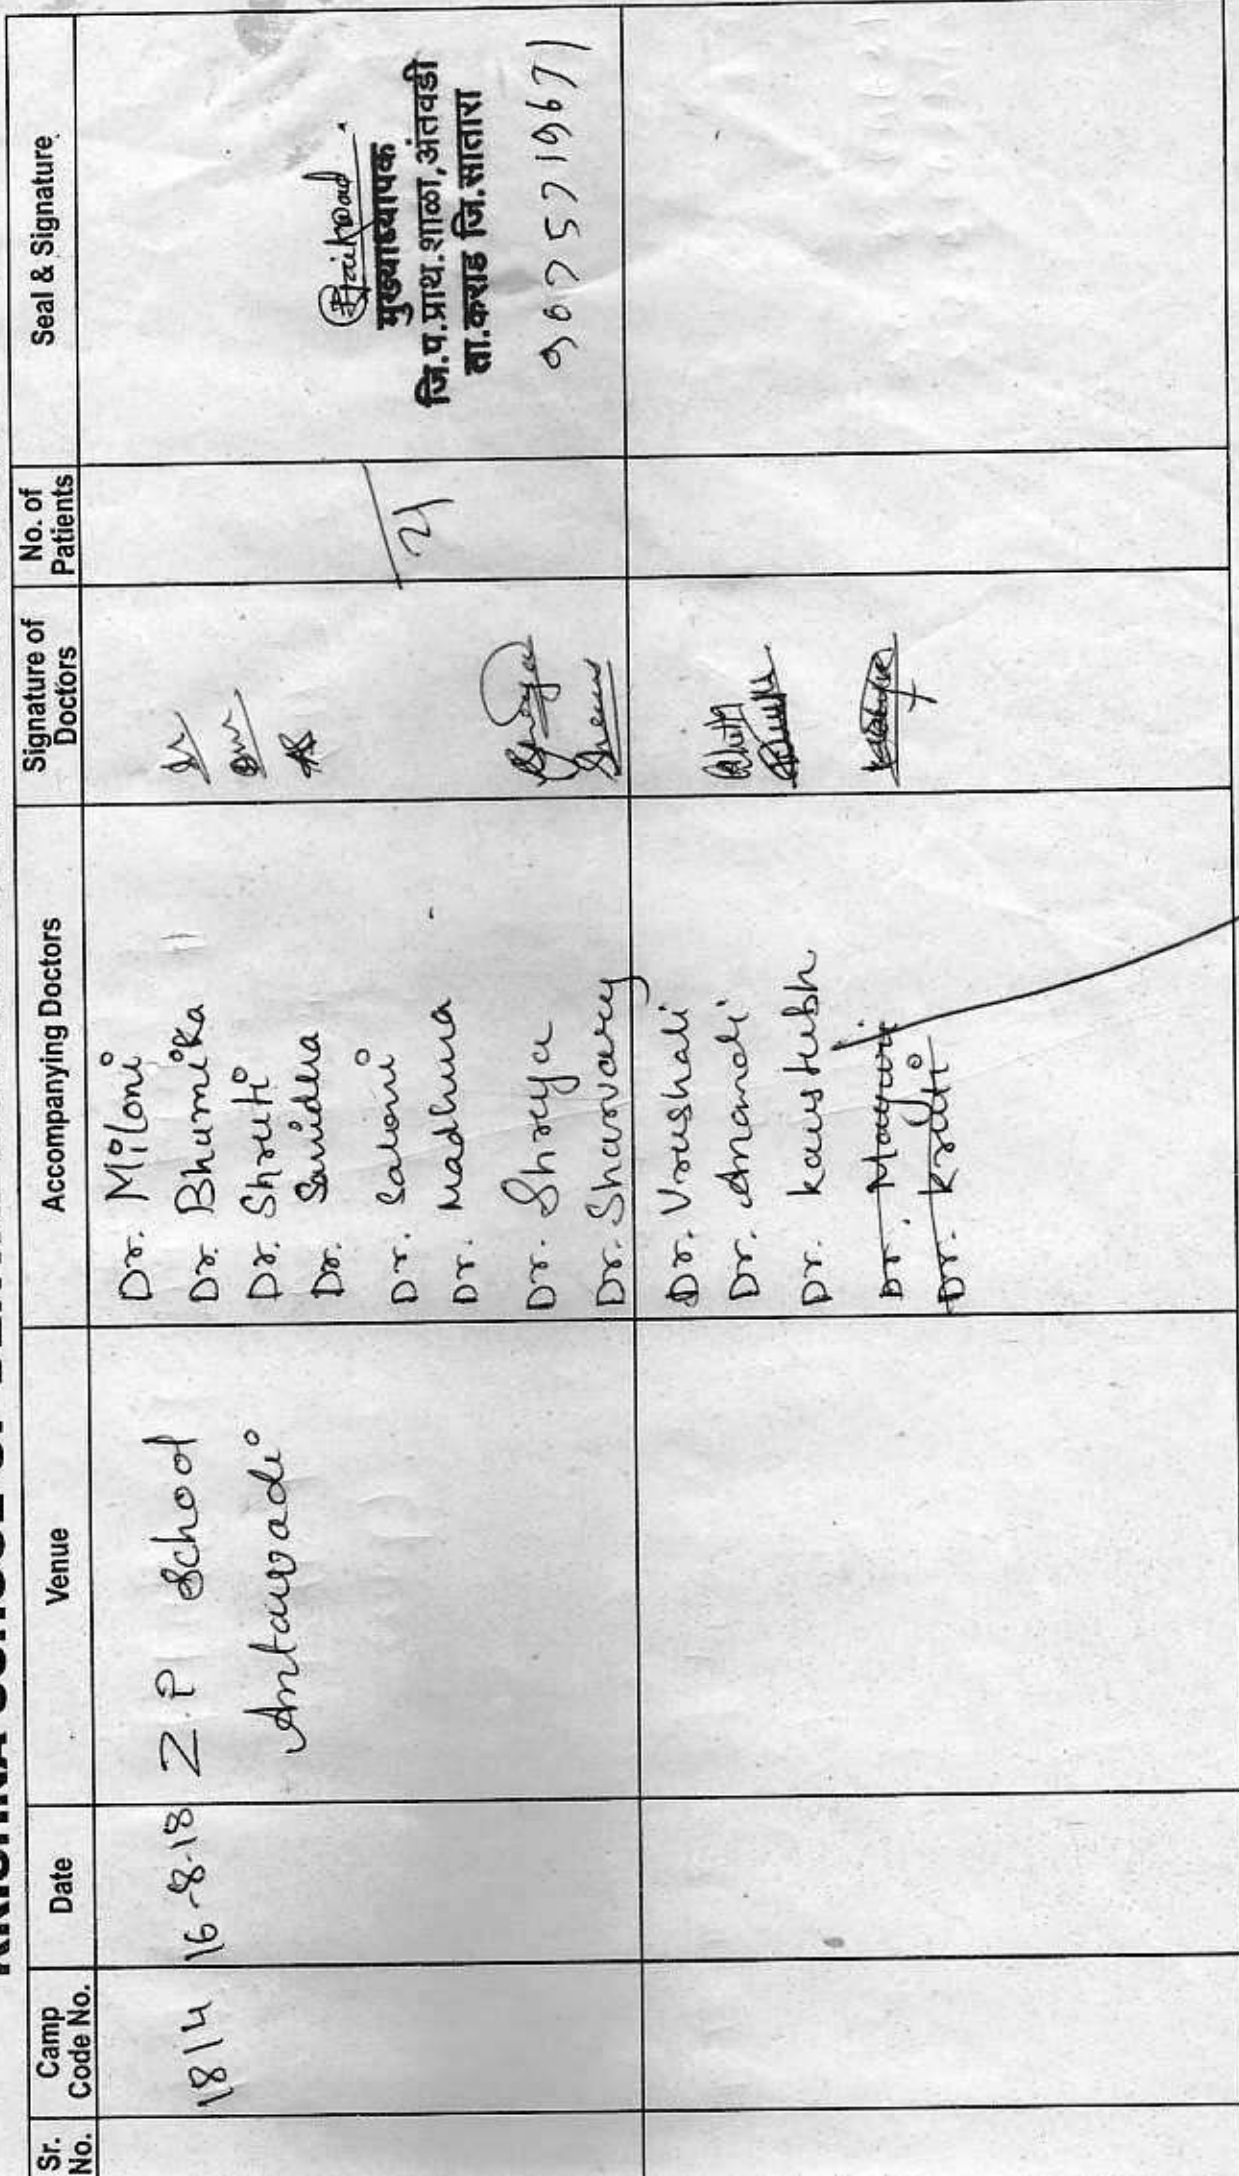 Sr. No.
Camp Code No.
Date
Venue
Accompanying Doctors
Signature of Doctors
No. of Patients
Seal & Signature
1814
16-8-18
Z.P School
Antawadi
Dr. Miloni
Dr. Bhumika
Dr. Shruti
Dr. Sanidha
Dr. Saloni
Dr. Madhura
Dr. Shreya
Dr. Sharvary
21
मुख्याध्यापक
जि.प.प्राथ.शाळा,अंतवडी
ता.कराड जि.सातारा
9675719671
Dr. Vrushali
Dr. Anandi
Dr. kaustubh
Dr. Mayuri
Dr. Kruti